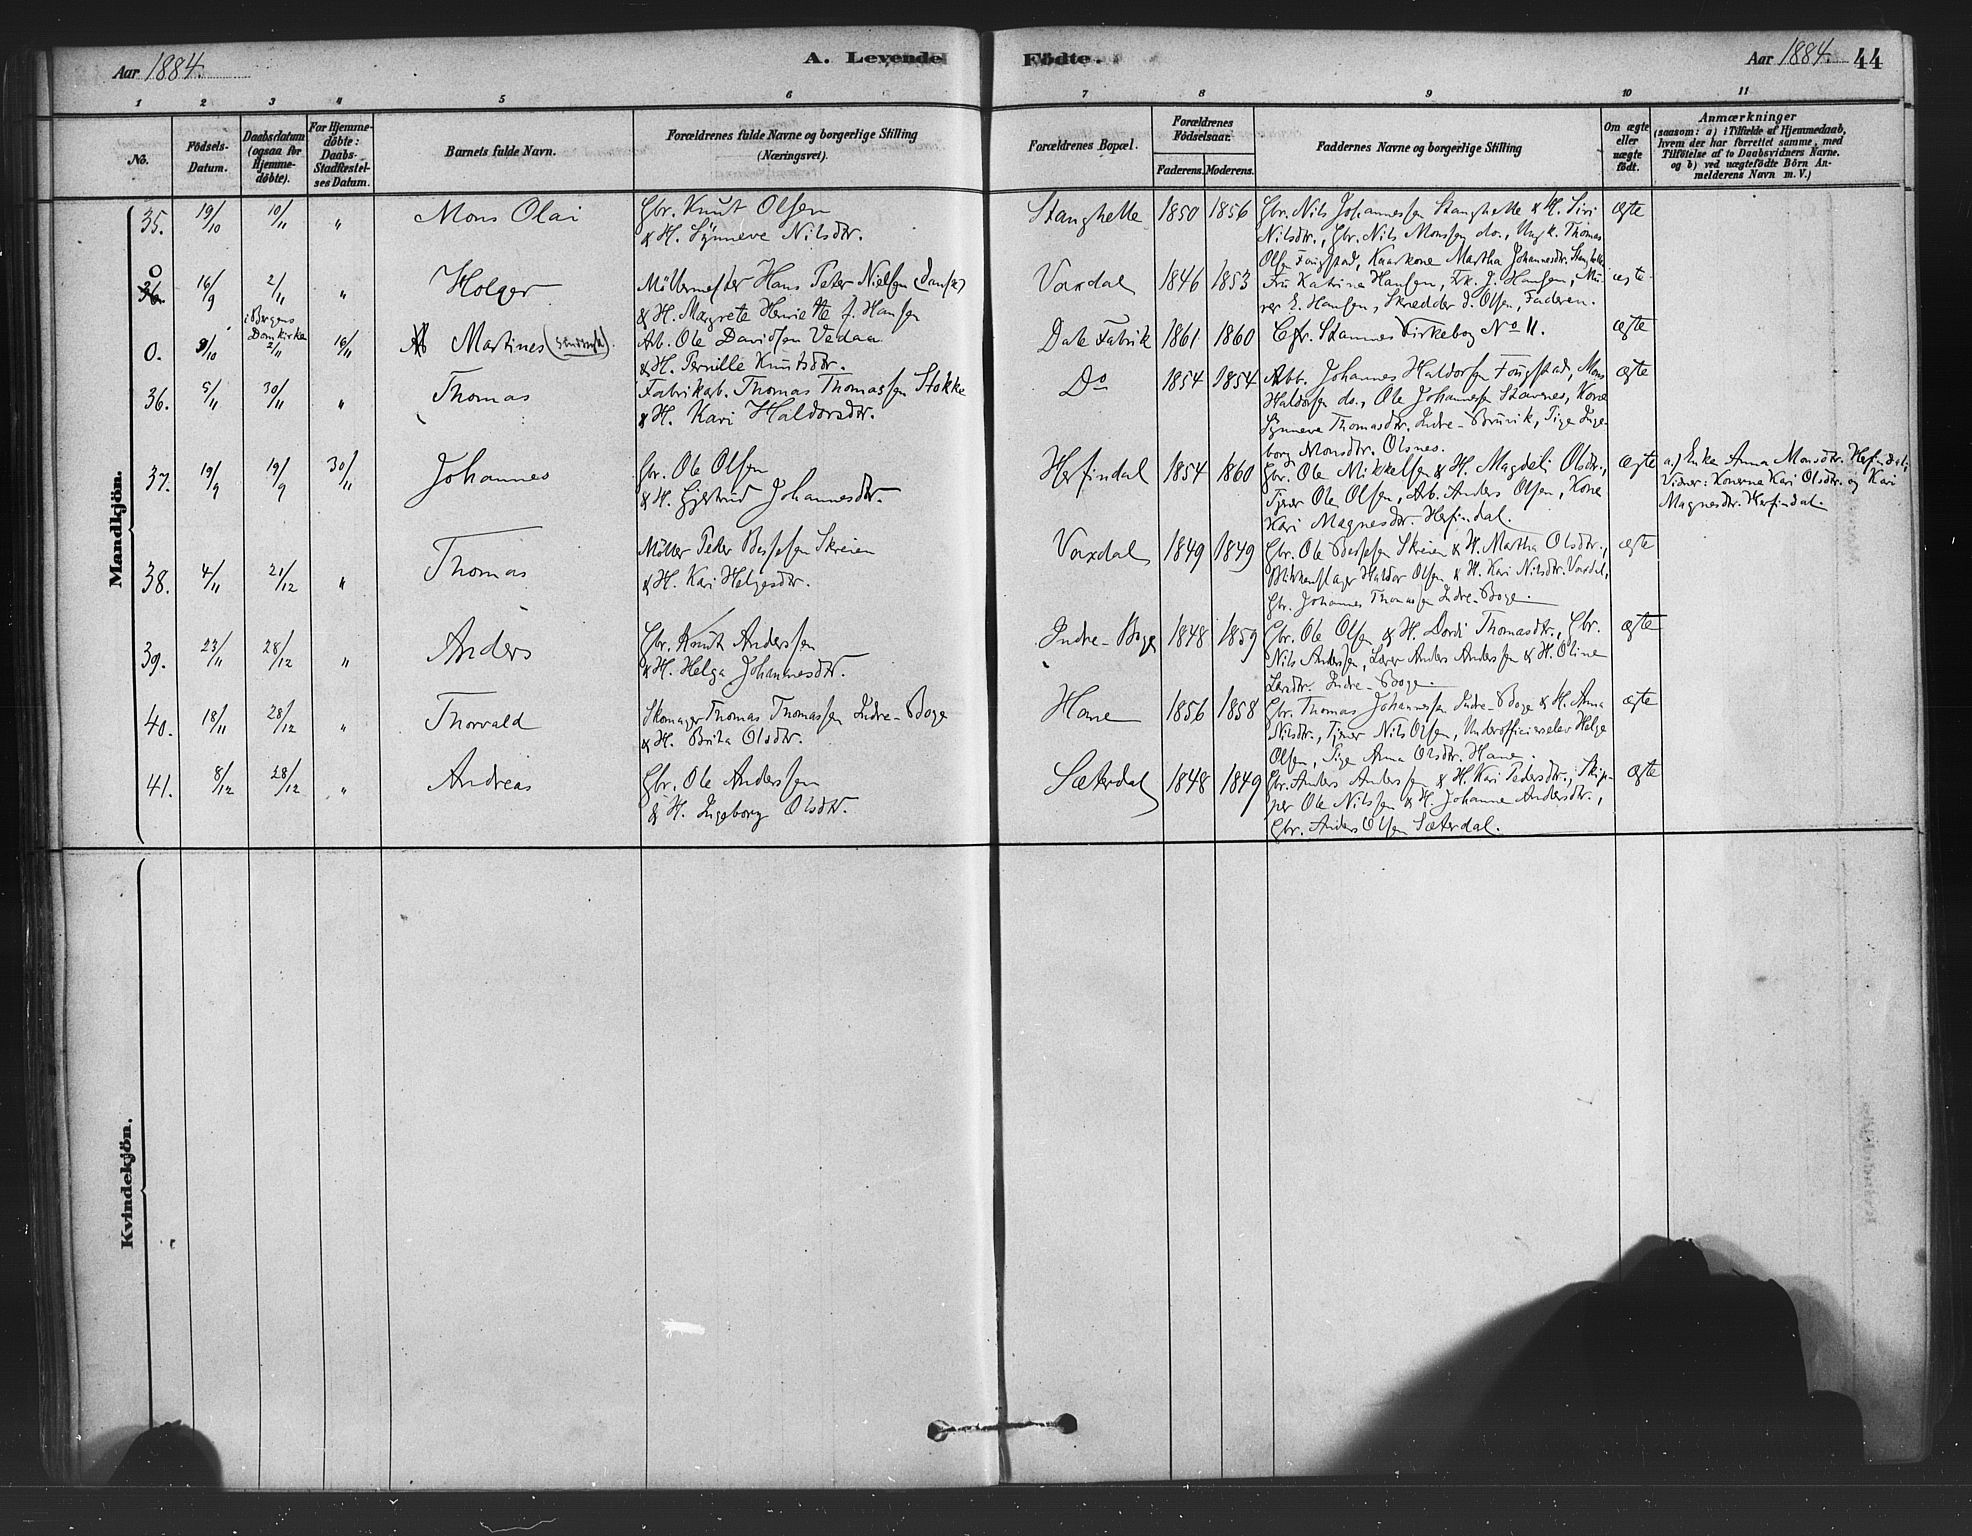 Aar 1884.
A. Levende Födte.
Aar 1884. 44
1 2 3 4 5 6 7 8 9 10 11
No.
Födsels-
Datum.
Daabsdatum
(ogsaa for
Hjemme-
döbte).
For Hjemme-
döbte:
Daabs-
Stadfæstel-
ses Datum.
Barnets fulde Navn.
Forældrenes fulde Navne og borgerlige Stilling
(Næringsvei).
Forældrenes Bopæl.
Forældrenes
Födselsaar.
Faderens. Moderens.
Faddernes Navne og borgerlige Stilling
Om ægte
eller
uægte
födt.
Anmærkninger
(saasom: a) i Tilfælde af Hjemmedaab,
hvem der har forrettet samme, med
Tilföielse af to Daabsvidners Navne,
og b) ved uægtefödte Börn An-
melderens Navn m. V.)
Mandkjön.
35. 19/10 10/11 " Mons Olai
Gbr. Knut Olsen
& H. Synneve Nilsdtr.
Stanghelle 1850 1856
Gbr. Nils Johannessen Stanghelle & H. Siri
Nilsdtr., Gbr. Nils Monsen do., Ungk. Thomas
Olsen Fougstad, Kaarkone Martha Johannesdtr. Stanghelle
ægte
0 36. 16/9 2/11 " Holger
Möllermester Hans Peter Nielsen (dansk)
& H. Margrete Henriette f. Hansen
Vaxdal 1846 1853
Fru Katrina Hansen, Frk. J. Hansen, Mu-
rer E. Hansen, Skrædder J. Olsen, Faderen.
ægte
0. 9/10 i Bergens
Domkirke
2/11 16/11 Martines
Arb. Ole Davidsen Vedaa
& H. Pernille Knutsdtr.
Dale Fabrik 1861 1860
Cfr. Stamnes Kirkebog No 11.
ægte
36. 5/11 30/11 " Thomas
Fabrikarb. Thomas Thomassen Stokke
& H. Kari Haldorsdtr.
Do 1854 1854
Arb. Johannes Haldorsen Fougstad, Mons
Haldorsen do., Ole Johannessen Stavenes, Kone
Synneva Thomasdtr. Indre-Bruvik, Pige Inge-
borg Monsdtr. Olsnes.
ægte
37. 19/9 19/9 30/11 Johannes
Gbr. Ole Olsen
& H. Gjertrud Johannesdtr.
Herfindal 1854 1860
Gbr. Ole Mikkelsen & H. Magdeli Olsdtr.,
Tjener Ole Olsen, Arb. Anders Olsen, Kone
Kari Magnesdtr. Herfindal.
ægte
a) Enke Anna Monsdtr. Herfindal;
Vidner: Konerne Kari Olsdtr. og Kari
Magnesdtr. Herfindal.
38. 4/11 21/12 " Thomas
Möller Peter Bessesen Skreien
& H. Kari Helgesdtr.
Vaxdal 1849 1849
Gbr. Ole Bessesen Skreien & H. Martha Olsdtr.,
Blikkenslager Haldor Olsen & H. Kari Nilsdtr. Vaxdal,
Gbr. Johannes Thomassen Indre-Boge.
ægte
39. 23/11 28/12 " Anders
Gbr. Knut Anderssen
& H. Helga Johannesdtr.
Indre-Boge 1848 1859
Gbr. Ole Olsen & H. Dordi Thomasdtr., Gbr.
Nils Anderssen, Lærer Anders Anderssen & H. Oline
Larsdtr. Indre-Boge.
ægte
40. 18/11 28/12 " Thorvald
Skomager Thomas Thomassen Indre-Boge
& H. Brita Olsdtr.
Hane 1856 1858
Gbr. Thomas Johannessen Indre-Boge & H. Anna
Nilsdtr., Tjener Nils Olsen, Underofficierselev Helge
Olsen, Pige Anna Olsdtr. Hane.
ægte
41. 8/12 28/12 " Andreas
Gbr. Ole Anderssen
& H. Ingeborg Olsdtr.
Sæterdal 1848 1849
Gbr. Anders Anderssen & H. Kari Pedersdtr., Skip-
per Ole Nilssen & H. Johanne Andersdtr.,
Gbr. Anders Olsen Sæterdal.
ægte
Kvindekjön.